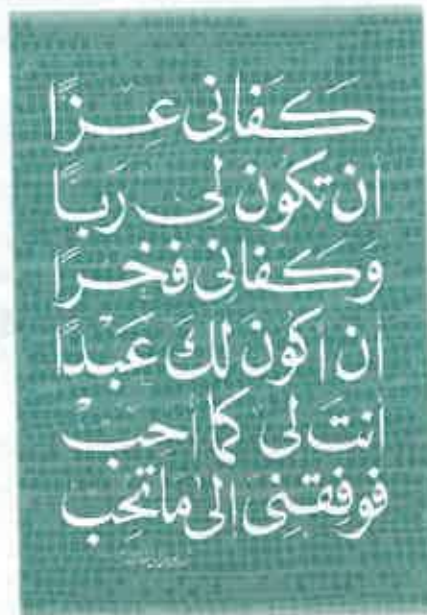 كَفانى عِزًّا
ان تكون لى ربًّا
وَكَفانى فخرًا
ان اكونَ لكَ عَبْدًا
انتَ لى كما احِبّ
فوفقنِى الىٰ ماتحِب